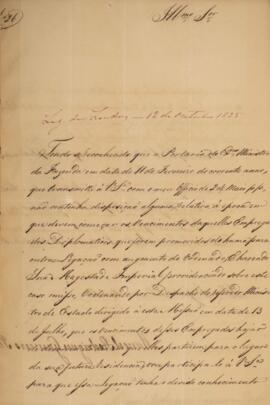 Illmo Snr
Leg. em Londres em 12 de Outubro 1825
Tendo reconhecido que a Portaria do Ministro
da Fazenda em data de 11 de Fevereiro do corrente anno,
que transmitti a V.Sa com o meu Officio de
não contenha disposição alguma relativa á época em
que devem começar os vencimentos daquelles Emprega-
dos Diplomaticos que forem promovidos de huma para
outra Legação com augmento de Ordenado, Houve
Sua Magestade Imperial providenciar sobre este
caso omisso, Ordenando por Despacho do referido Minis-
tro de Estado dirigido a esta em data de 13
de Julho, que os vencimentos desses Empregados hajão
partirem para o lugar
da sua futura Residencia participo a V.Sa
para que essa Legação tenha o devido conhecimento